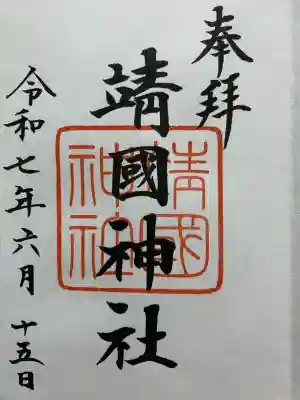 奉拝
靖國神社
靖國
神社
令和七年六月十五日